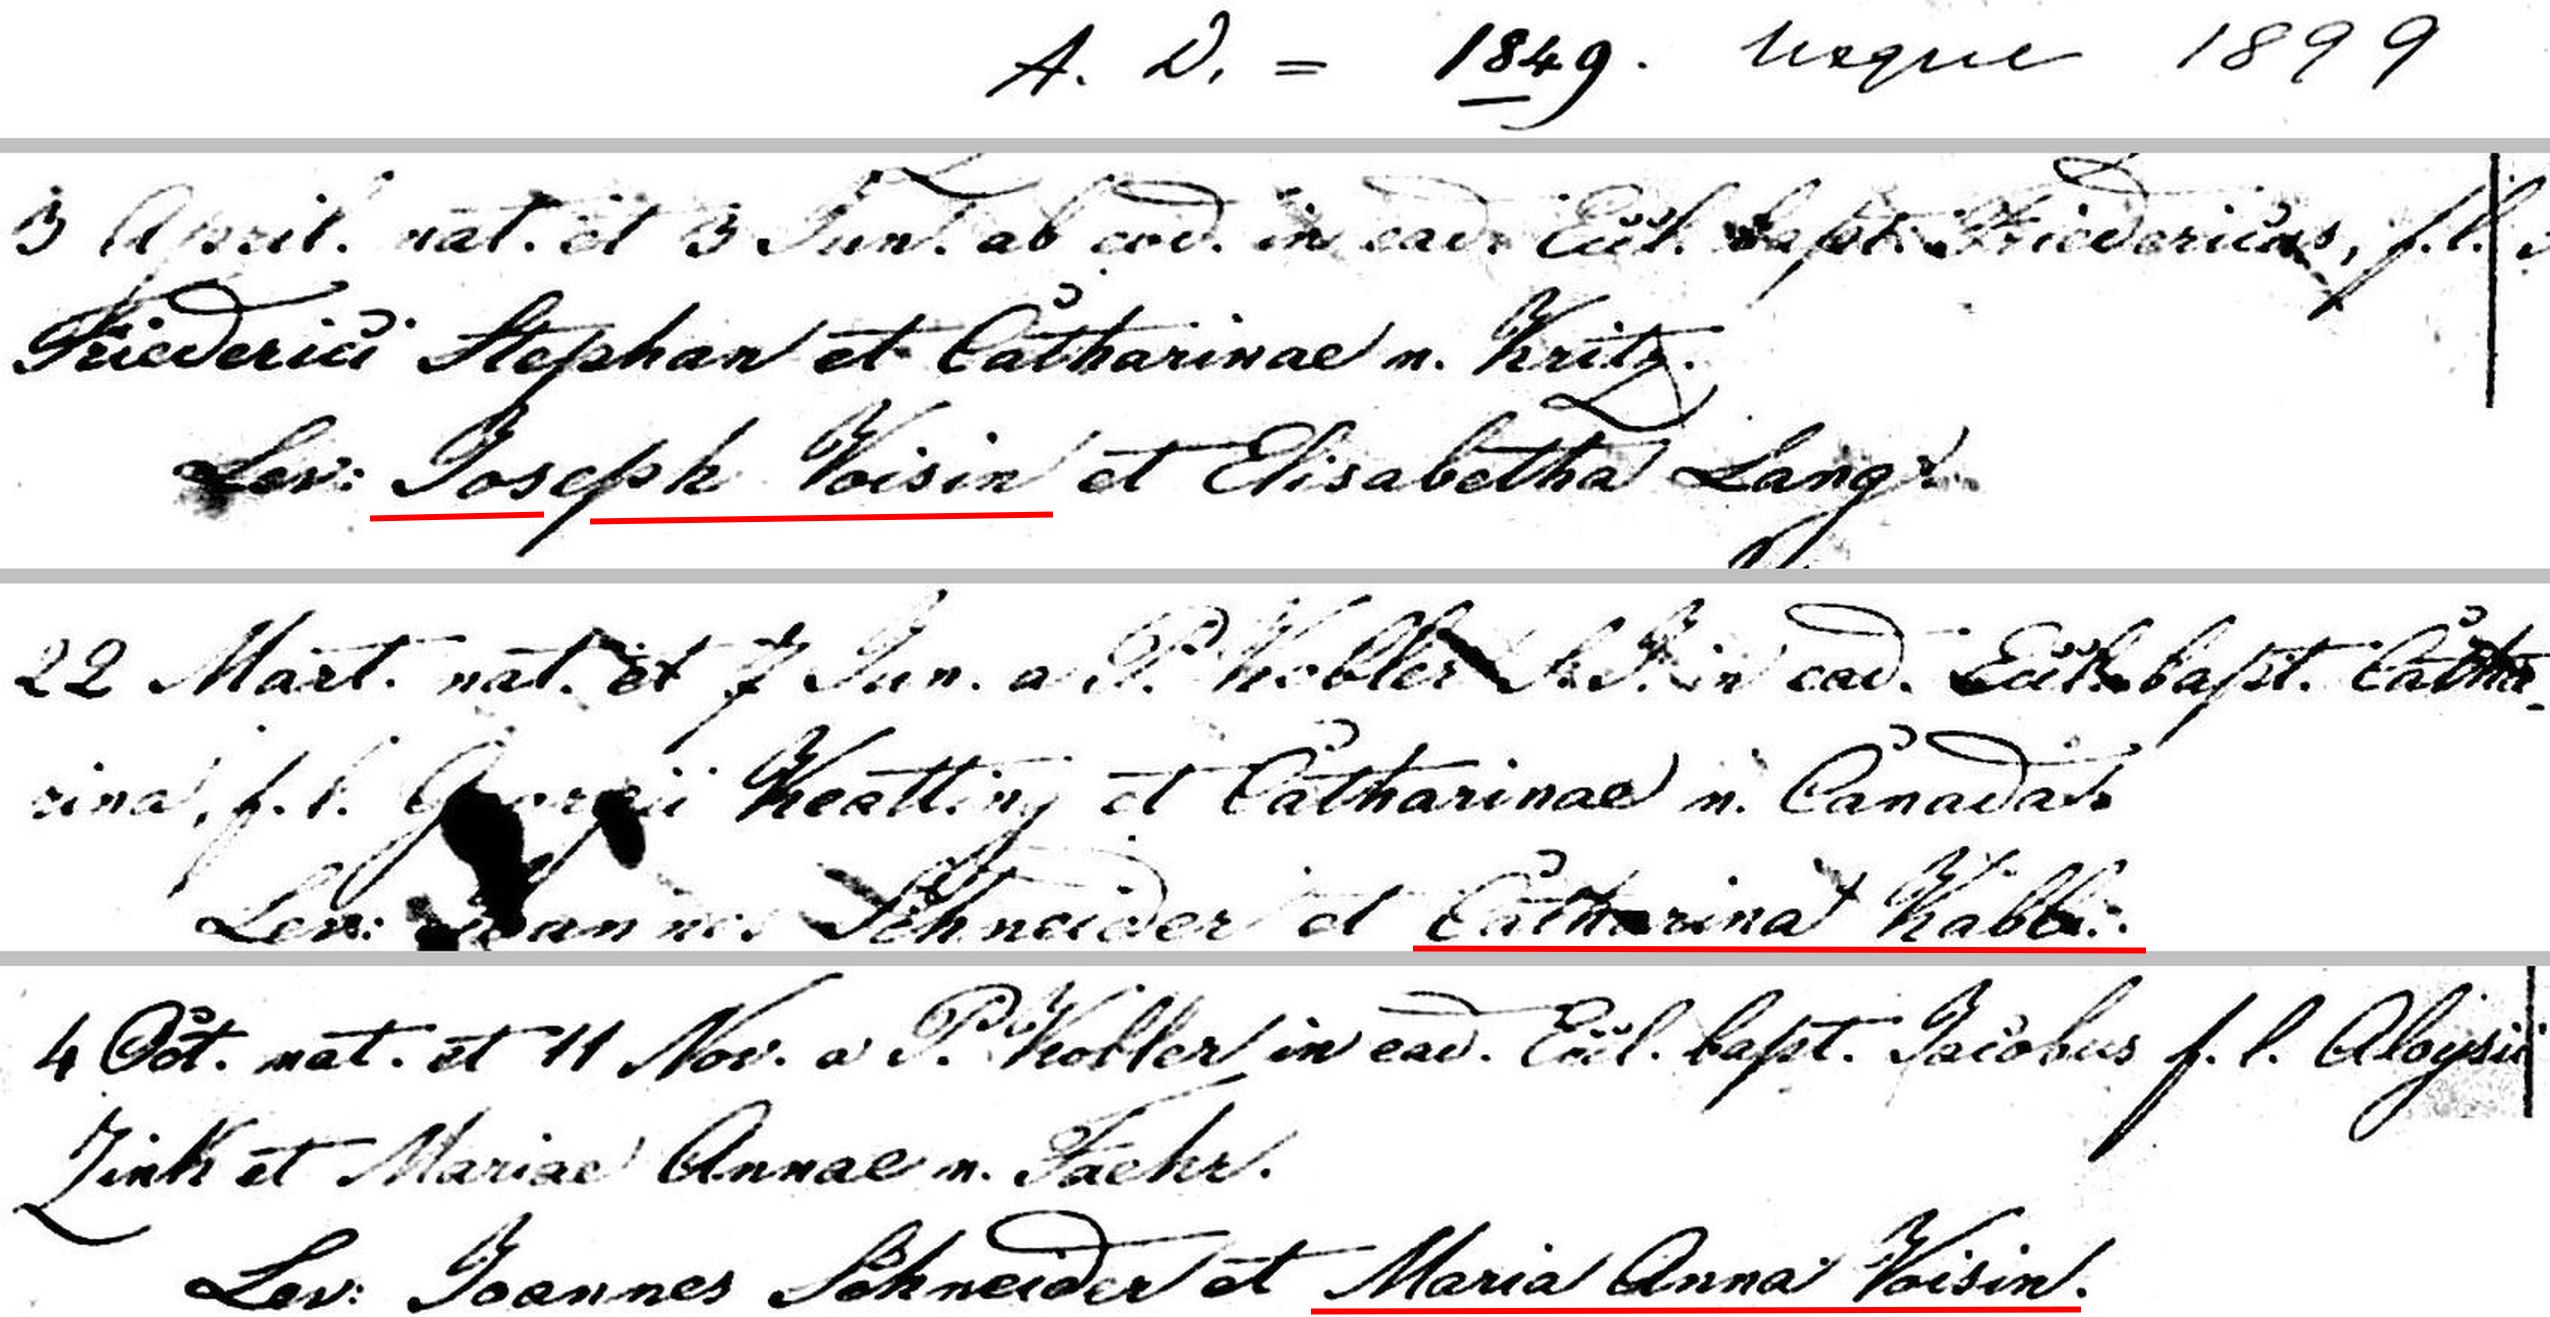 A. D. = 1849. usque 1899
3 April. nat. et 3 Jun. ab eod. in ead. Eccl. bapt. Friedericus, f. l.
Friederici Stephan et Catharinae n. Kritz.
Lev: Joseph Voisin et Elisabetha Lang.
22 Mart. nat. et 7 Jun. a P. Kobler S. J. in ead. Eccl. bapt. Catha-
rina, f. l. Georgii Keatting et Catharinae n. Canada.
Lev: Joannes Schneider et Catharina Kabb.
4 Oct. nat. et 11 Nov. a P. Kobler in ead. Eccl. bapt. Jacobus f. l. Aloysii
Zink et Mariae Annae n. Faehr.
Lev: Joannes Schneider et Maria Anna Voisin.